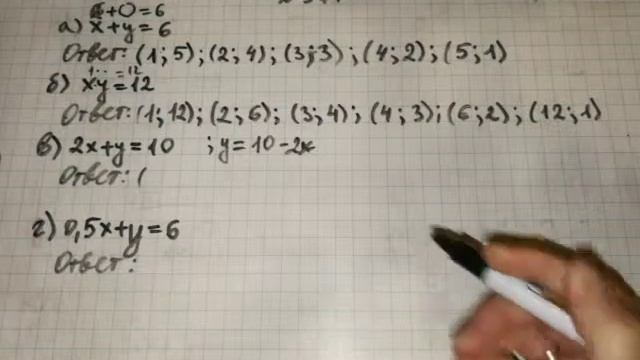 6+0=6
а) x+y=6
Ответ: (1;5);(2;4);(3;3);(4;2);(5;1)
1·  =12
б) xy=12
Ответ: (1;12);(2;6);(3;4);(4;3);(6;2);(12;1)
в) 2x+y=10 ;y=10-2x
Ответ: (
г) 0,5x+y=6
Ответ: